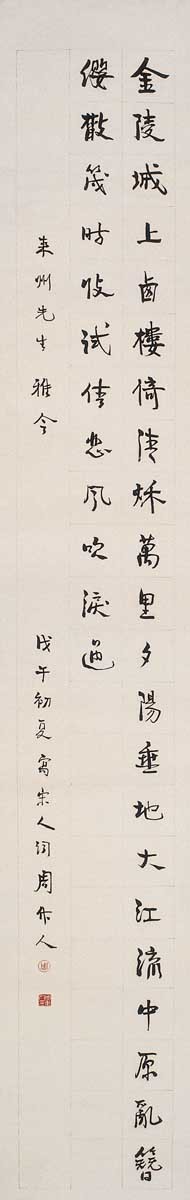 金陵城上卥樓倚清秌萬里夕陽垂地大江流中原亂簪
纓散幾時收試倩悲風吹淚過
来州先生雅令
戊午初夏寫宋人詞周作人